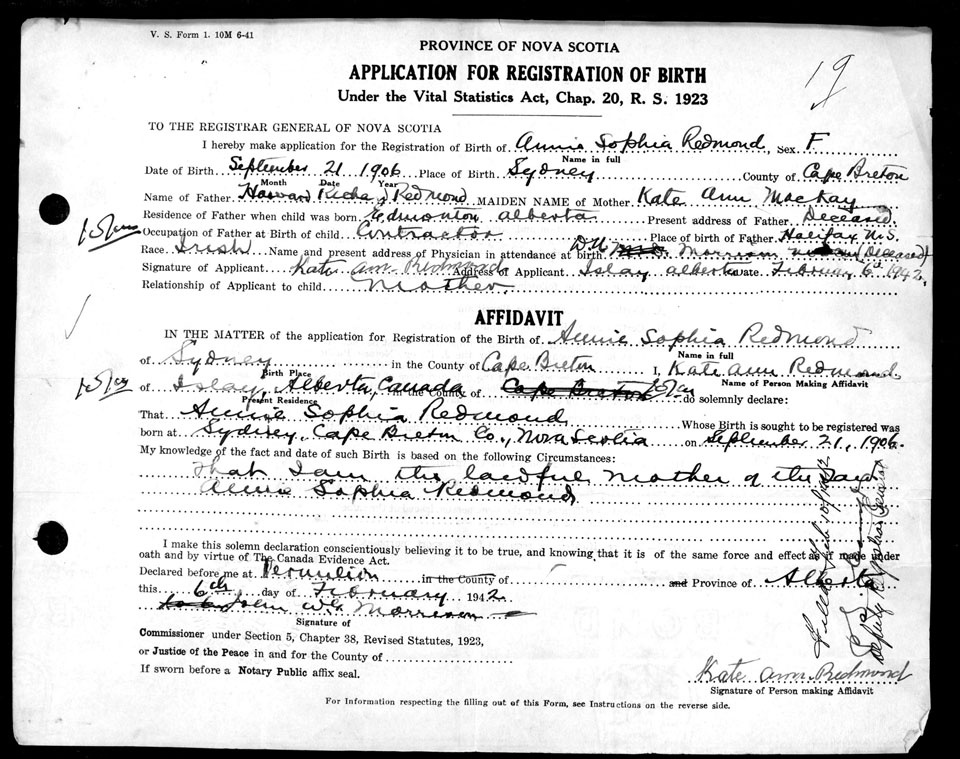 V. S. Form 1. 10M 6-41
PROVINCE OF NOVA SCOTIA
APPLICATION FOR REGISTRATION OF BIRTH
Under the Vital Statistics Act, Chap. 20, R. S. 1923
19
TO THE REGISTRAR GENERAL OF NOVA SCOTIA
I hereby make application for the Registration of Birth of Annie Sophia Redmond, Sex F
Name in full
Date of Birth September 21 1906 Place of Birth Sydney County of Cape Breton
Month Date Year
Name of Father Redmond MAIDEN NAME of Mother Kate Ann MacKay
Residence of Father when child was born Edmonton Alberta Present address of Father Deceased
Occupation of Father at Birth of child Contractor Place of birth of Father Halifax N.S.
Race Irish Name and present address of Physician in attendance at birth Morrison (Deceased)
Signature of Applicant Kate Ann Redmond Address of Applicant Islay Alberta Date February 6th 1942.
Relationship of Applicant to child Mother
AFFIDAVIT
IN THE MATTER of the application for Registration of the Birth of Annie Sophia Redmond
Name in full
of Sydney in the County of Cape Breton I, Kate Ann Redmond
Birth Place Name of Person Making Affidavit
of Islay, Alberta, Canada in the County of Cape Breton do solemnly declare:
Present Residence
That Annie Sophia Redmond Whose Birth is sought to be registered was
born at Sydney, Cape Breton Co., Nova Scotia on September 21, 1906.
My knowledge of the fact and date of such Birth is based on the following Circumstances:
That I am the lawful mother of the said
Annie Sophia Redmond
I make this solemn declaration conscientiously believing it to be true, and knowing that it is of the same force and effect as if made under
oath and by virtue of The Canada Evidence Act.
Declared before me at Vermilion in the County of and Province of Alberta
this 6th day of February 1942.
John Morrison
Signature of
Commissioner under Section 5, Chapter 38, Revised Statutes, 1923,
or Justice of the Peace in and for the County of
If sworn before a Notary Public affix seal.
Kate Ann Redmond
Signature of Person making Affidavit
For Information respecting the filling out of this Form, see Instructions on the reverse side.
Deputy Registrar General